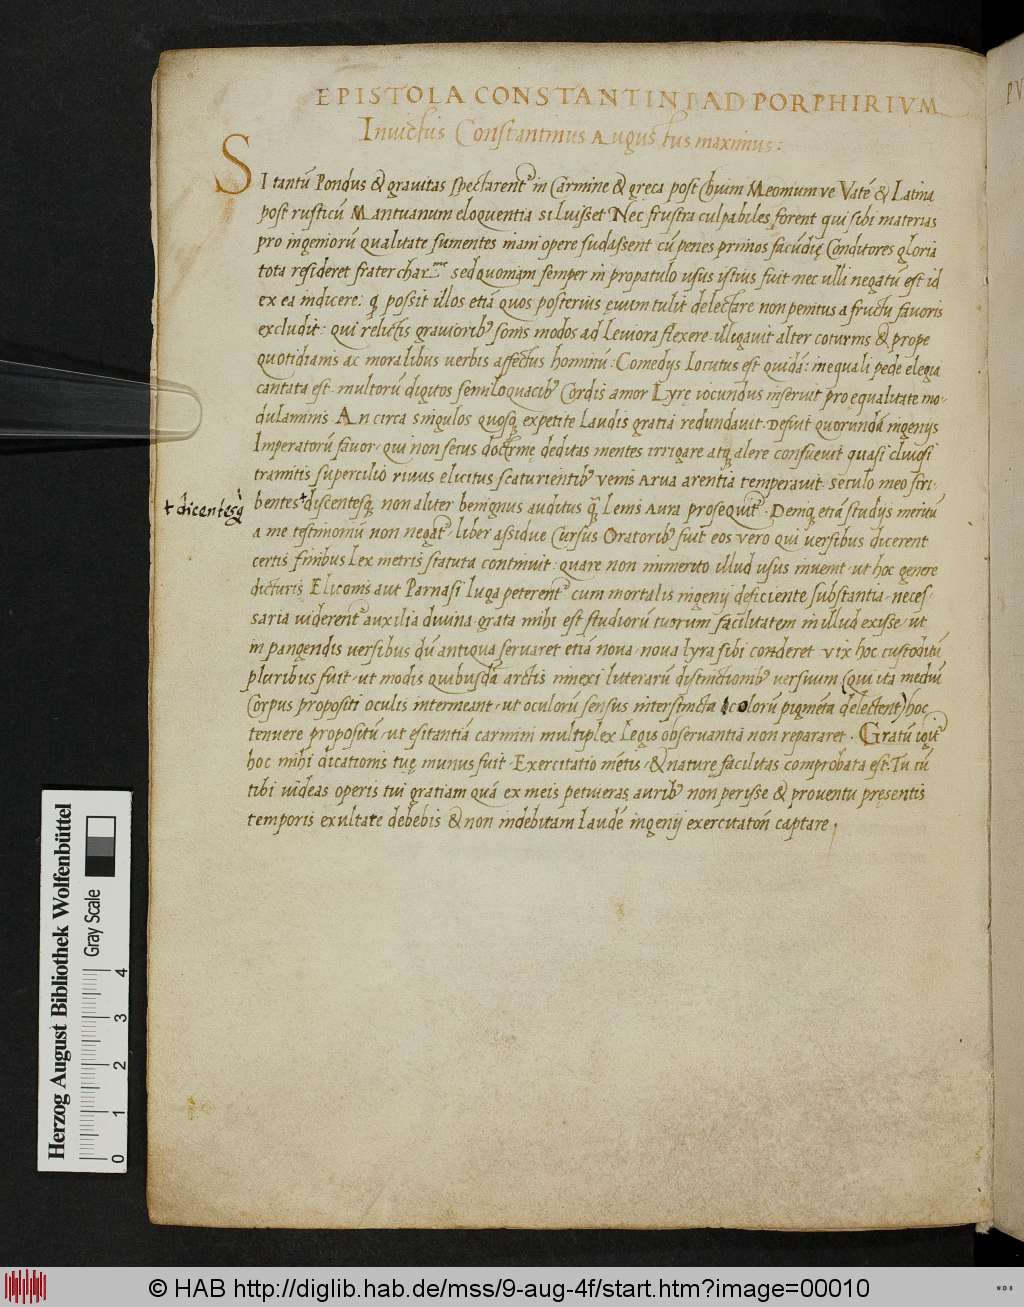 EPISTOLA CONSTANTINI AD PORPHIRIVM
Invictus Constantinus Augustus maximus:
SI tantũ Pondus & gravitas spectarent᷒ in Carmine & gręca post Chium Meonium ve Vatẽ & Latina
post rusticũ Mantuanum eloquentia siluisset Nec frustra culpabiles forent qui sibi materias
pro ingeniorũ qualitate sumentes inani opere sudassent cũ penes primos facũdię Conditores gloria
tota resideret frater char.me sed quoniam semper in propatulo usus istius fuit nec ulli negatũ est id
ex ea indicere: q possit illos etiã quos posterius ęuum tulit delectare non penitus a fructu favoris
excludit: qui relictis gravioribꝰ sonis modos ad Leviora flexere illigavit alter coturnis & prope
quotidianis ac moralibus verbis affectus hominũ: Comedys Locutus est quidã: inequali pede elegia
cantata est multorũ digitos semiloquacibꝰ Cordis amor Lyrę iocundus inseruit pro ęqualitate mo-
dulaminis An circa singulos quosq expetite Laudis gratiã redundavit. Defuit quorundã ingenys
Imperatorũ favor qui non secus doctrinę deditas mentes irrigare atq alere consuevit quasi clivosi
tramitis supercilio rivus elicitus scaturientibꝰ venis Arva arentia temperavit. seculo meo scri-
bentes + discentesq non aliter benignus auditus q̃ Lenis Aura prosequit᷒. Demq etiã studys meritũ
+ dicentesq
a me testimoniũ non negat᷒ liber assidue Cursus Oratoribꝰ fuit eos vero qui versibus dicerent
certis finibus Lex metris statuta continuit: quare non immerito illud usus invenit ut hoc genere
dicturis Eliconis aut Parnasi Iuga peterent᷒ cum mortalis ingenij deficiente substantia neces-
saria viderent᷒ auxilia divina grata mihi est studiorũ tuorum facilitatem in illud exisse ut
in pangendis versibus dũ antiqua servaret etiã nova nova lyra sibi conderet vix hoc custoditũ
pluribus fuit ut modis quibusdã arctis innexi litterarũ distinctionibꝰ versuum (qui ita mediũ
Corpus propositi oculis intermeant ut oculorũ sensus interstincta colorũ pigmẽta delectent) hoc
tenuere propositũ ut esitantiã carmini multiplex Legis observantia non repararet. Gratũ igit᷒
hoc mihi dicationis tuę munus fuit Exercitatio mẽtis & naturę facilitas comprobata est. Tu cũ
tibi videas operis tui gratiam quã ex meis petiveras auribꝰ non perisse & proventu pręsentis
temporis exultate debebis & non indebitam Laudẽ ingenij exercitatoñ captare
Herzog August Bibliothek Wolfenbüttel
Gray Scale
0 1 2 3 4
© HAB http://diglib.hab.de/mss/9-aug-4f/start.htm?image=00010